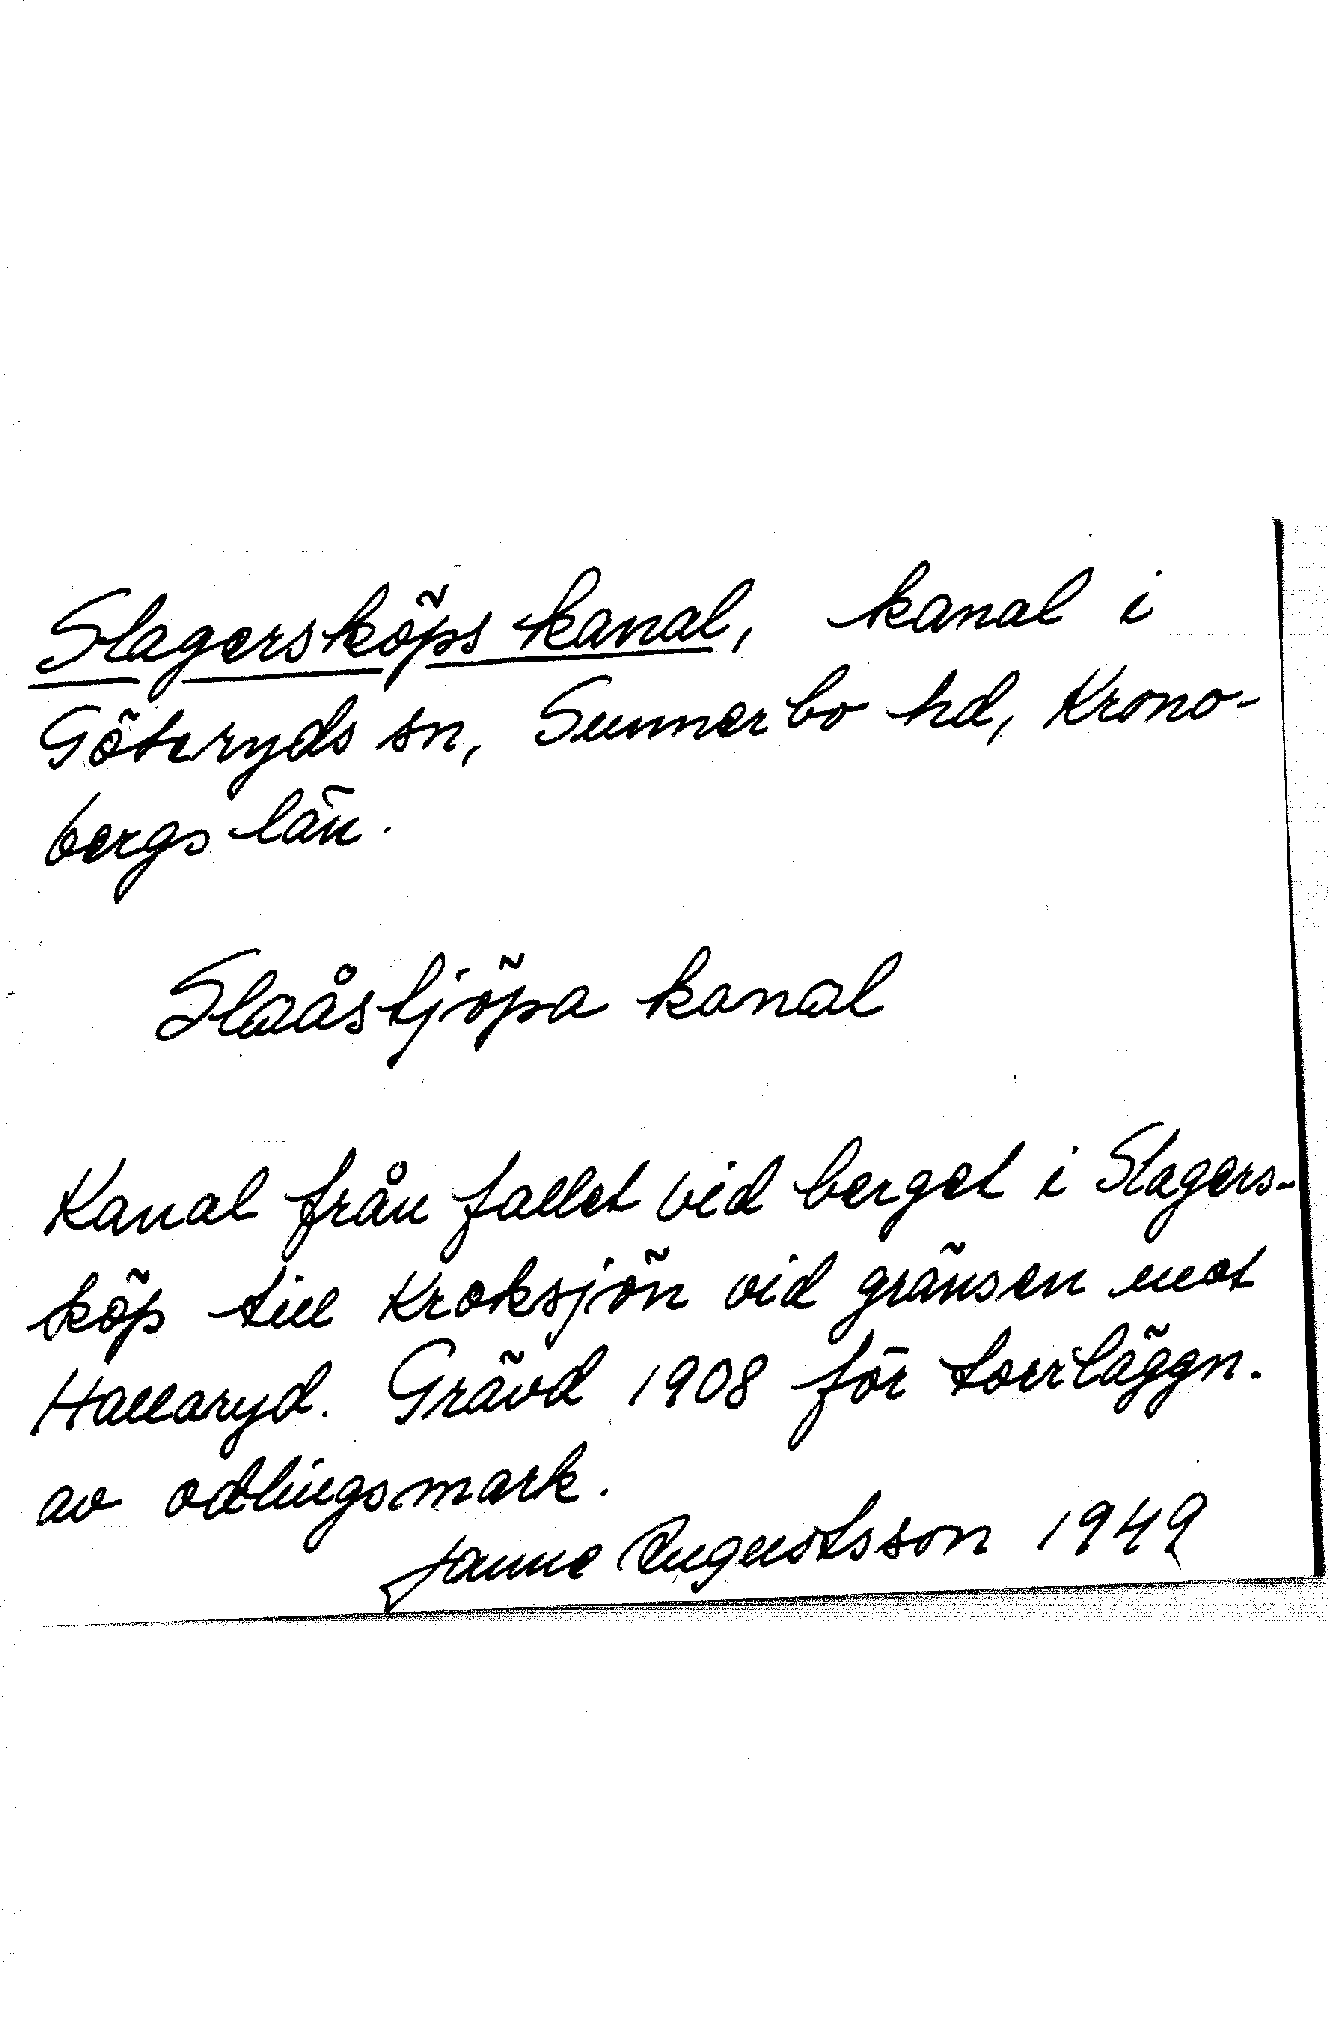 Slagersköps kanal, kanal i
Göteryds sn, Sunnerbo hd, Krono-
bergs län.
Slaåstjöpa kanal
Kanal från fallet vid berget i Slagers-
köp till Kroksjön vid gränsen mot
Hallaryd. Grävd 1908 för torrläggn.
av odlingsmark.
Janne Augustsson 1949